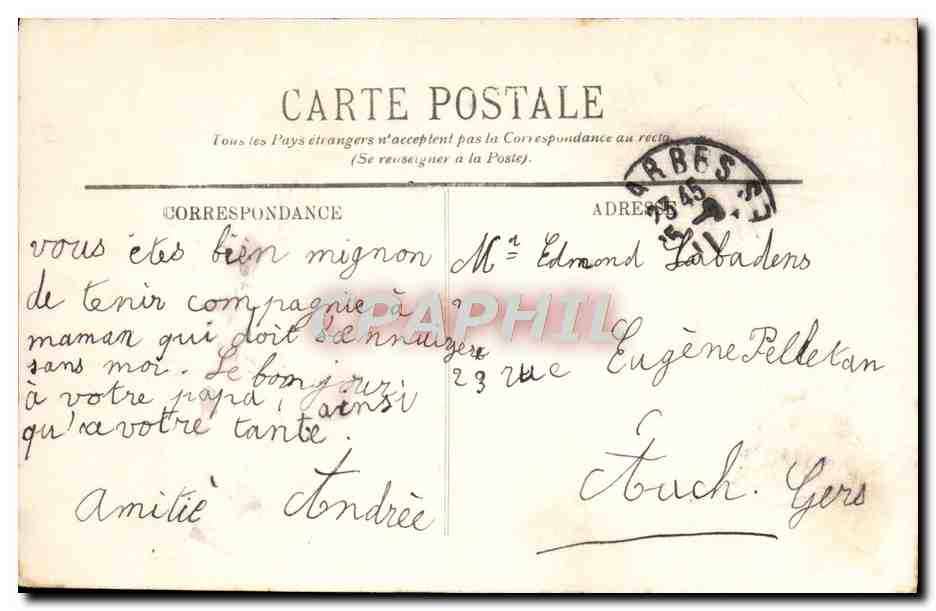 CARTE POSTALE
Tous les Pays étrangers n'acceptent pas la Correspondance au recto
(Se renseigner à la Poste).
ARBES
CORRESPONDANCE
ADRESSE
vous étes bien mignon
de tenir compagnie à
maman qui doit
sans moi. Le bonjour
à votre papa, ainsi
qu'a votre tante.
Amitié Andrée
Edmond Labadens
23 rue Eugène Pelletan
Auch. Gers
CPAPHIL